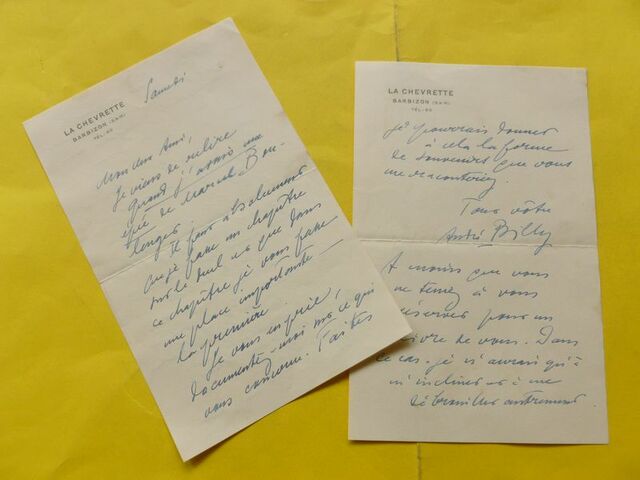 LA CHEVRETTE
BARBIZON (S&M)
TÉL. 60
Samedi
Mon cher Ami,
Je viens de relire
Quand j'avais une
épée de Marcel Bou-
lenger. Il faut absolument
que je fasse un chapitre
sur le duel et que dans
ce chapitre je vous fasse
une place importante
La première.
Je vous en prie,
documentez-moi sur ce qui
vous concerne. Faites
LA CHEVRETTE
BARBIZON (S&M)
TÉL. 60
je pourrais donner
à cela la forme
de souvenirs que vous
me raconteriez.
Tout vôtre
André Billy
A moins que vous
ne teniez à vous
réserver pour un
livre de vous. Dans
ce cas, je n'aurais qu'à
m'incliner et à me
débrouiller autrement.